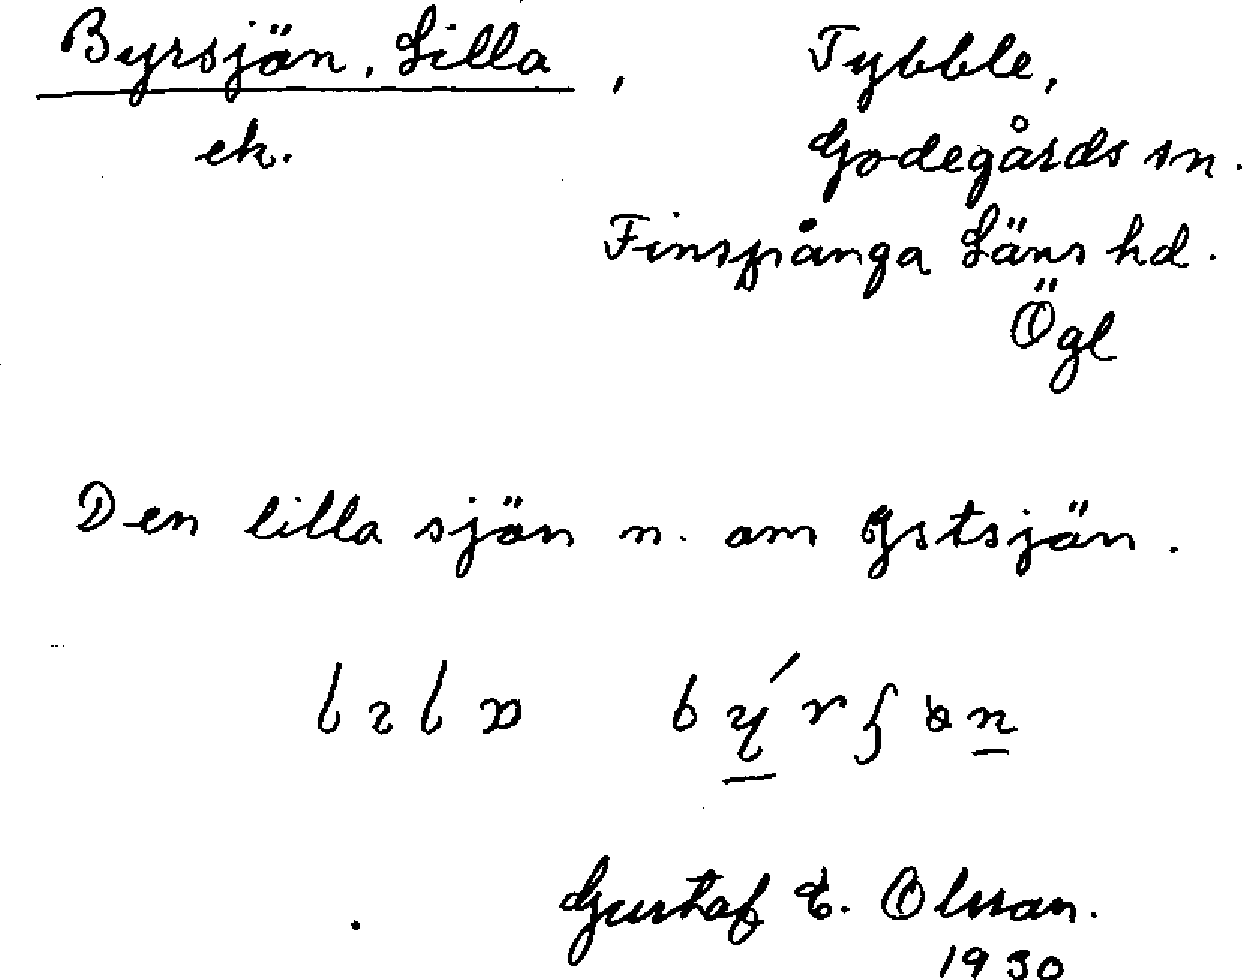 Byrsjön, Lilla, Tybble,
ek. Godegårds sn.
Finspånga Läns hd.
Ögl
Den lilla sjön n. om
Gustaf E. Olsson.
1930